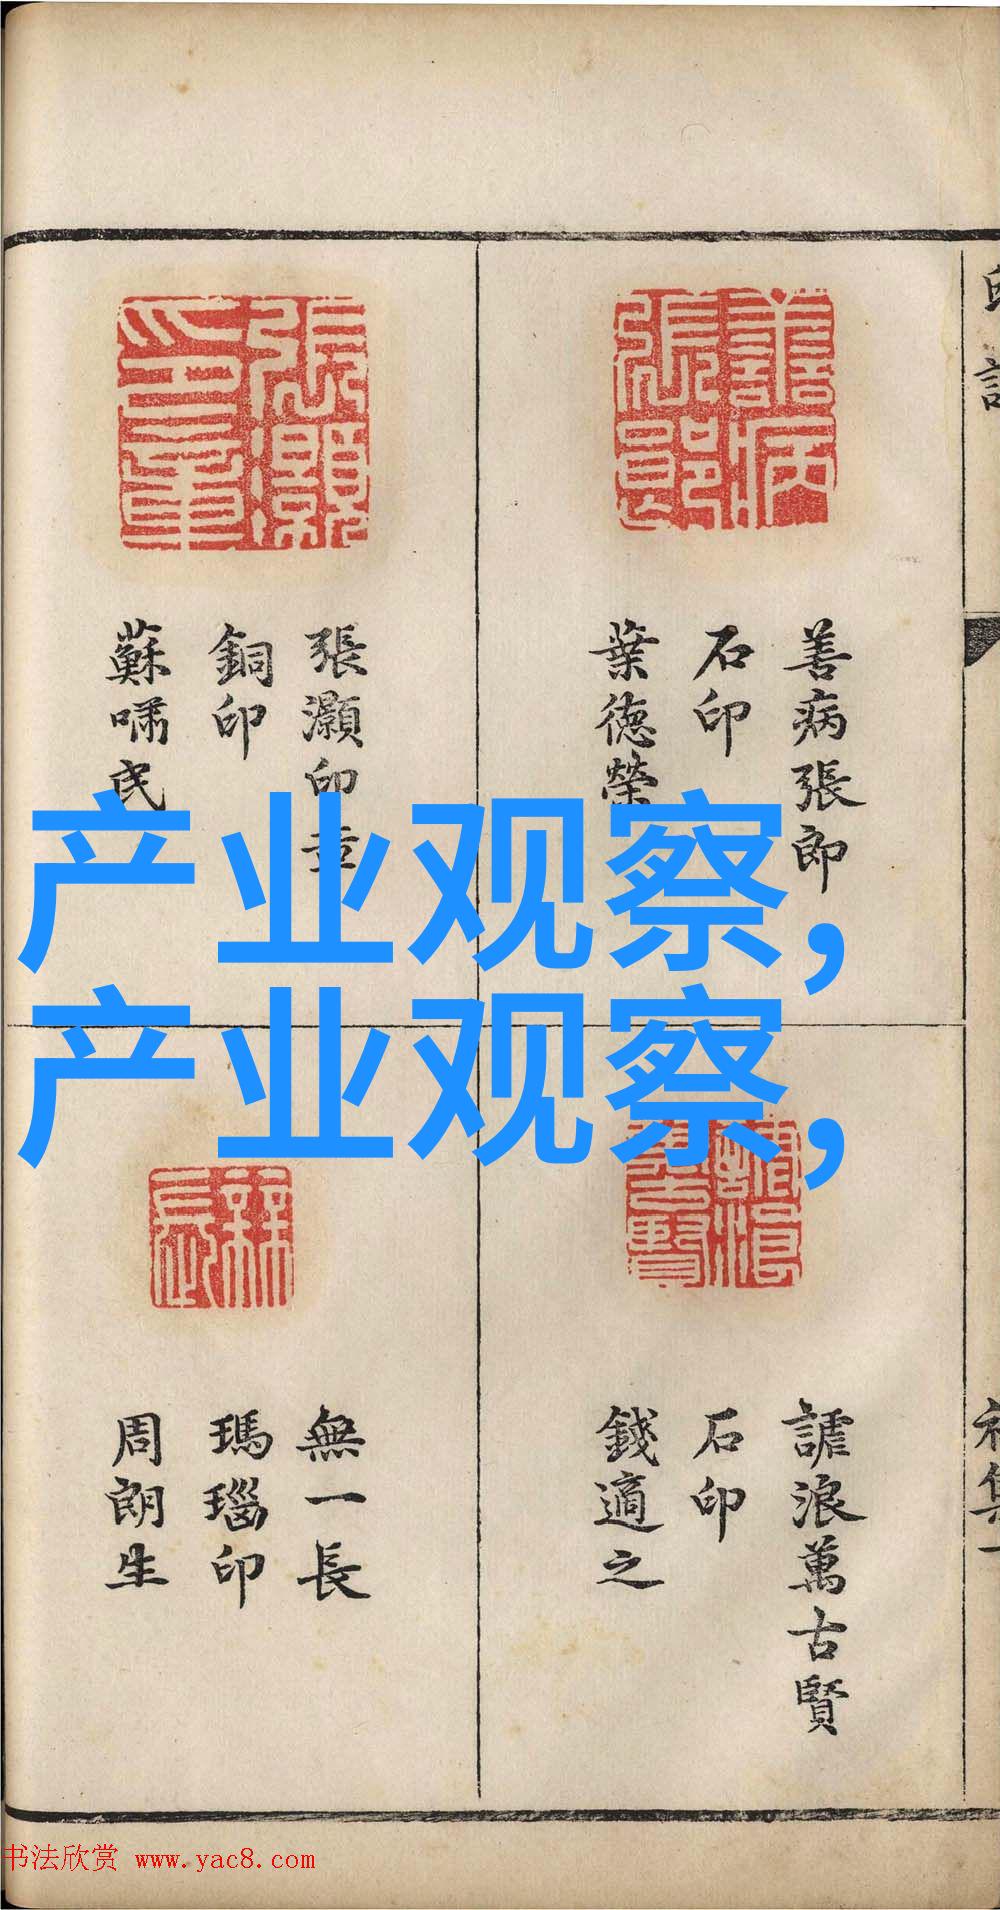 善病張郎
石印
葉德榮
張灝印章
銅印
蘇嘯民
产业观察,
产业观察,
謔浪萬古賢
石印
錢適之
無一長
瑪瑙印
周朗生
书法欣赏 www.yac8.com